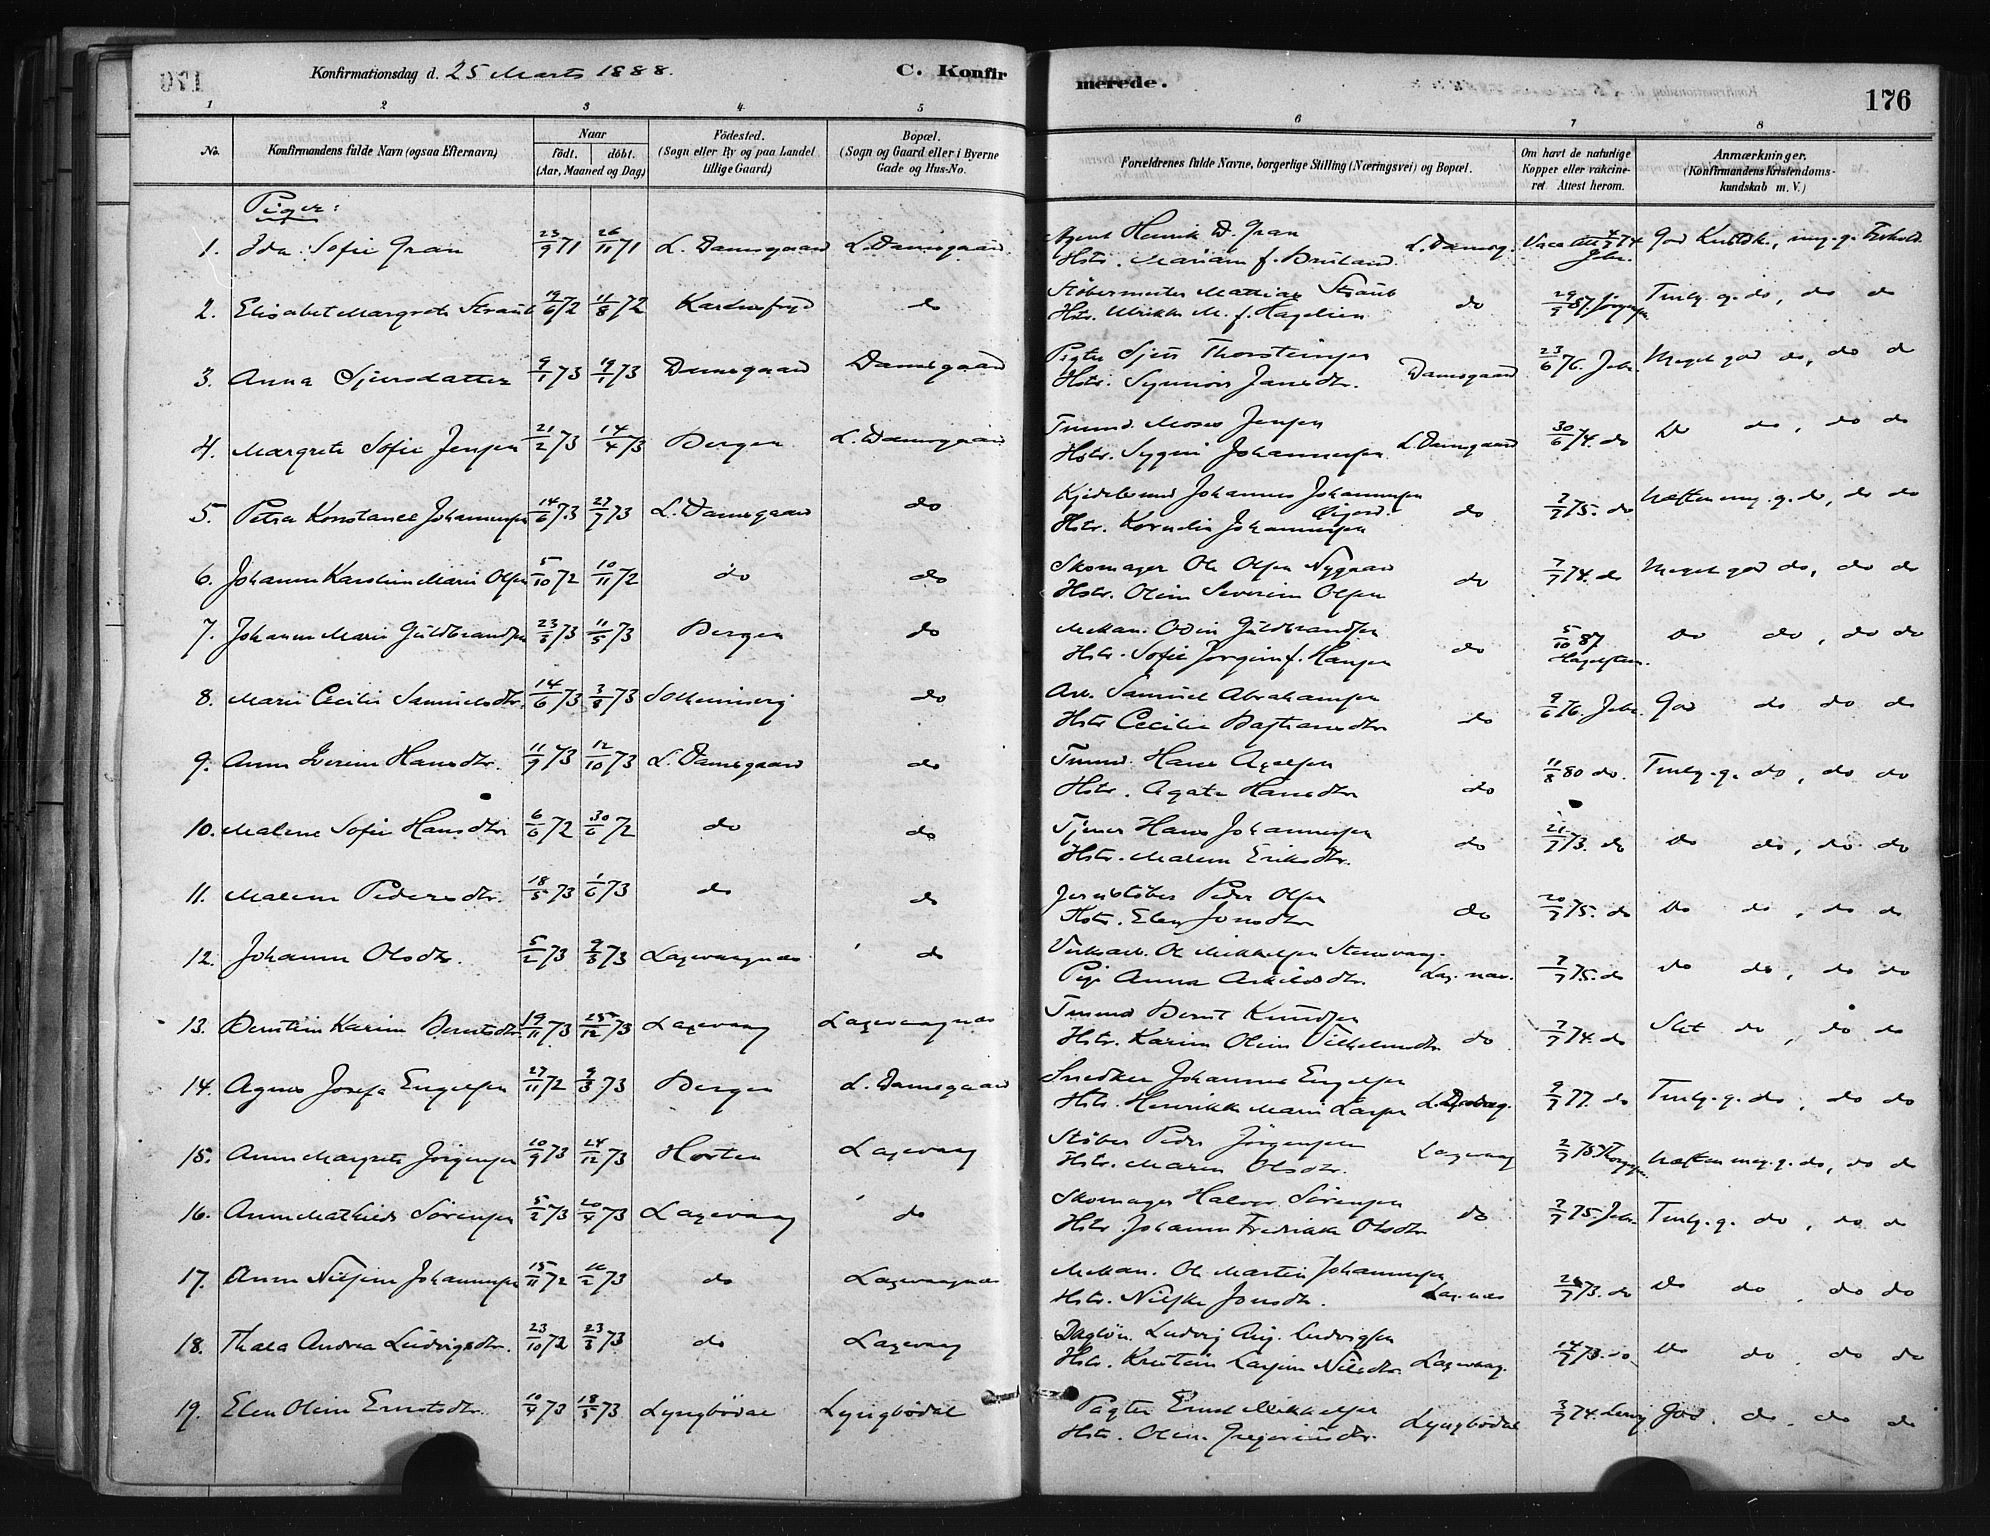 Konfirmationsdag d. 25 Marts 1888. C. Konfirmerede. 176
1 2 3 4 5 6 7 8
No. Konfirmandens fulde Navn (ogsaa Efternavn) Naar født. døbt. (Aar, Maaned og Dag) Fødested. (Sogn eller By og paa Landet tillige Gaard) Bopæl. (Sogn og Gaard eller i Byerne Gade og Hus-No. Forældrenes fulde Navne, borgerlige Stilling (Næringsvei) og Bopæl. Om havt de naturlige Kopper eller vaccineret Attest herom. Anmærkninger. (Konfirmandens Kristendomskundskab m. V.)
Piger:
1. Ida Sofie Gran 23/9 71 26/11 71 L. Damsgaard L. Damsgaard Agent Henrik D. Gran
Hstr. Mariam f. L. Damsg.
2. Elisabet Margrete Straub 19/6 72 11/8 72 do Støbermester Mathias Straub
Hstr. Ulrikke M. f. Hagelsen do 29/9 87 do do
3. Anna Sjursdatter 9/1 73 19/1 73 Damsgaard Damsgaard Thorsteinsen
Hstr. Synnøve Jansdtr. Damsgaard 23/6 76. Meget god do, do do
4. Margrete Sofie Jensen 21/2 73 14/4 73 Bergen L. Damsgaard Tmmd. Moses Jensen
Hstr. Johannessen L. Damsgaard 30/6 74. do Do do, do do
5. Petra Konstance Johannessen 14/6 73 27/7 73 L. Damsgaard do Kjedelsmed Johannes Johannessen
Hstr. Kornelia Johannessen do 7/7 75. do Næsten meg. g. do, do do
6. Johanne Karoline Marie Olsen 5/10 72 10/11 72 do do Skomager Ole Olsen Nygaard
Hstr. Oline Severine Olsen do 7/7 74. do Meget god do, do do
7. Johanne Marie Guldbrandsen 23/3 73 11/5 73 Bergen do Mekan. Odin Guldbrandsen
Hstr. Sofie Jørgine f. Hansen do 5/10 87 Do do, do do
8. Marie Cecilie Samuelsdtr. 14/6 73 3/8 73 Solheimsvig do Arb. Samuel Abrahamsen
Hstr Cecilie Bastiansdtr do 9/6 76. God do do do
9. Anne Hansdtr. 11/9 73 12/10 73 L. Damsgaard do Tmmd. Hans Axelsen
Hstr. Agate Hansdtr do 11/8 80 do. do, do do
10. Malene Sofie Hansdtr 6/6 72 30/6 72 do do Tjener Hans Johannessen
Hstr. Malene Eriksdtr. do 21/7 73. do Do do, do do
11. Malene Pedersdtr. 18/5 73 1/6 73 do do Jernstøber Peder Olsen
Hstr. Elen Jonsdtr do 20/7 75. do Do do, do do
12. Johanne Olsdtr. 5/2 73 9/3 73 Laxevaagnæs do Ole Mikkelsen
Pige Anna Lax. næs. 7/7 75. do Do do, do do
13. Karine Berntsdtr. 19/11 73 25/12 73 Laxevaag Laxevaagnæs Tmmd Bernt Knudsen
Hstr. Karine Oline Vilhelmsdtr do 7/7 74. do Slet do, do do
14. Agnes Josefa Engelsen 27/11 72 9/3 73 Bergen L. Damsgaard Snedker Johannes Engelsen
Hstr. Henrikke Marie Larsen 9/7 77. do do, do do
15. Anne Margrete Jørgensen 10/9 73 24/12 73 Horten Laxevaag Støber Peder Jørgensen
Hstr. Maren Olsdtr. Laxevaag Næsten meg. g. do, do do
16. Anne Mathilde Sørensen 5/2 73 20/4 73 Laxevaag do Skomager Halvor Sørensen
Hstr Johanne Fredrikke Olsdtr do 7/7 75 do, do do
17. Anne Nilsine Johannessen 15/11 72 16/2 73 do Laxevaagnæs Mekan. Ole Martin Johannessen
Hstr. Nilske Jonsdtr. Lax. næs 73. do Do do, do do
18. Thala Andrea Ludvigsdtr. 23/10 72 23/3 73 do Laxevaag Dagløn. Ludvig Aug. Ludvigsen
Hstr. Nilsdtr Laxevaag. 14/7 73. do Do do, do do
19. Elen Oline Ernstsdtr. 10/4 73 18/5 73 Lyngbødal Lyngbødal Pagter Ernst Mikkelsen
Hstr. Oline Gregoriusdtr. Lyngbødal 3/7 74. God. do. do do